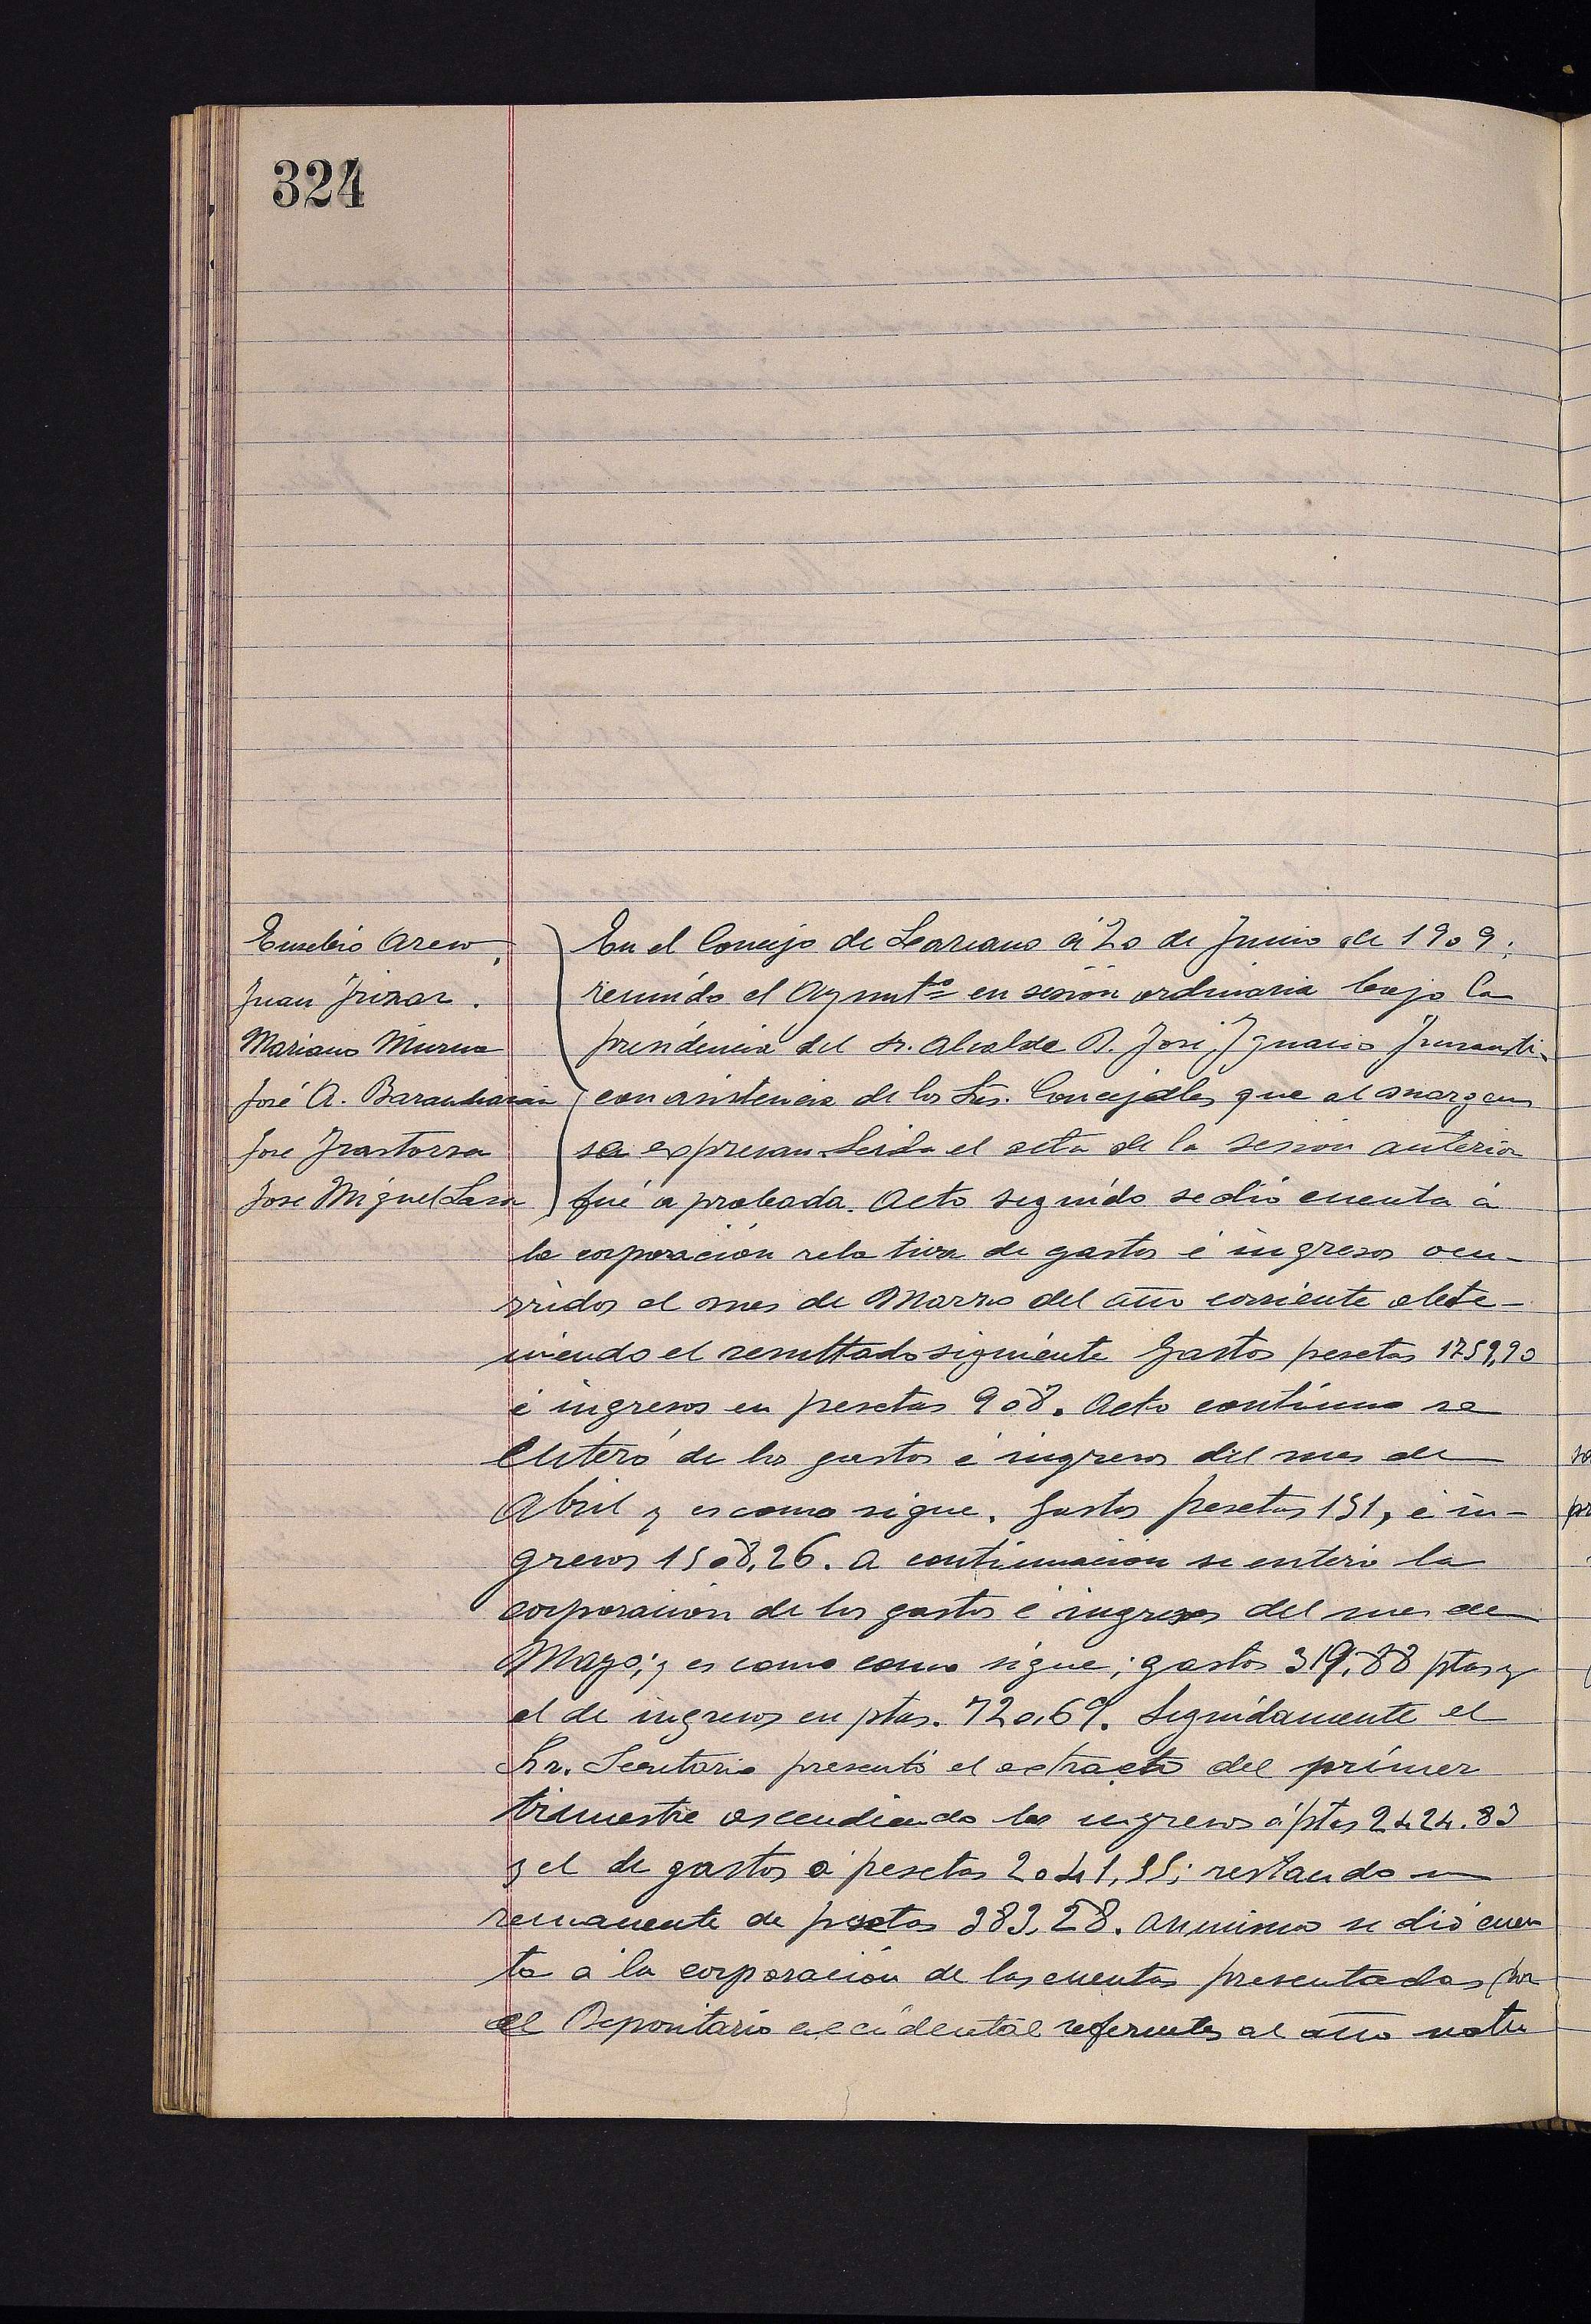 324
Eusebio Areso.
Juan Irizar.
Mariano Murua
José A. Barandiarán
José Irastorza
José Miguel Lasa
En el Concejo de Lazcano á 20 de Junio de 1909;
reunido el Ayuntº en sesión ordinaria bajo la
presidencia del Sr. Alcalde D. José Ignacio
con asistencia de los Srs. Concejales que al margen
se expresan. Leida el acta de la sesion anterior
fué aprobada. Acto seguido se dió cuenta á
la corporación relativa de gastos é ingresos ocu-
rridos el mes de Marzo del año corriente obte-
niendo el resultado siguiente Gastos pesetas 1759,90
é ingresos en pesetas 908. Acto contínuo se
enteró de los gastos é ingresos del mes de
Abril y es como sigue. Gastos pesetas 151, é in-
gresos 1508,26. A continuacion se enteró la
corporación de los gastos é ingresos del mes de
Mayo; y es como como sigue; gastos 319,88 ptas y
el de ingresos en ptas. 720,69. Seguídamente el
Sr. Secretario presentó el extracto del prímer
trimestre ascendiendo los ingresos á ptas 2424.83
y el de gastos á pesetas 2041,55; restando un
remanente de pesetas 383,28. Asimismo se dió cuen
ta á la corporación de las cuentas presentadas por
el Depositario accidental referentes al año